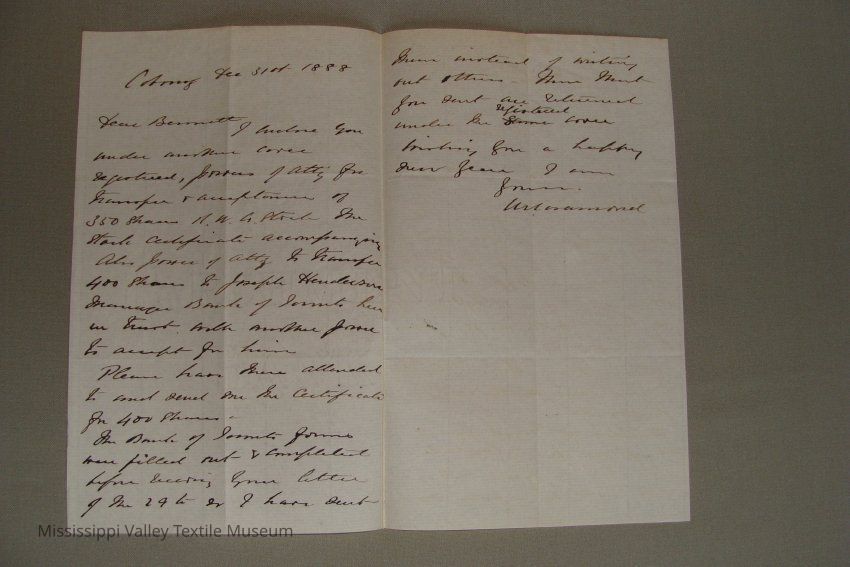 Cobourg Dec 31st 1888
Dear Bennett, I enclose you
under another cover
registered, powers of Atty for
transfer & acceptance of
350 shares Stock the
Stock certificate accompanying
Also power of Atty to transfer
400 shares to Joseph Henderson
manager Bank of Toronto here
in trust with another power
to accept for him
Please have these attended
to and send me the certificate
for 400 shares -
The Bank of Toronto forms
were filled out & completed
before receiving your letter
of the 29th so I have sent
them instead of writing
out others - Those that
you sent are returned
registered
under the same cover
Wishing you a happy
new year I am
Yours
Mississippi Valley Textile Museum